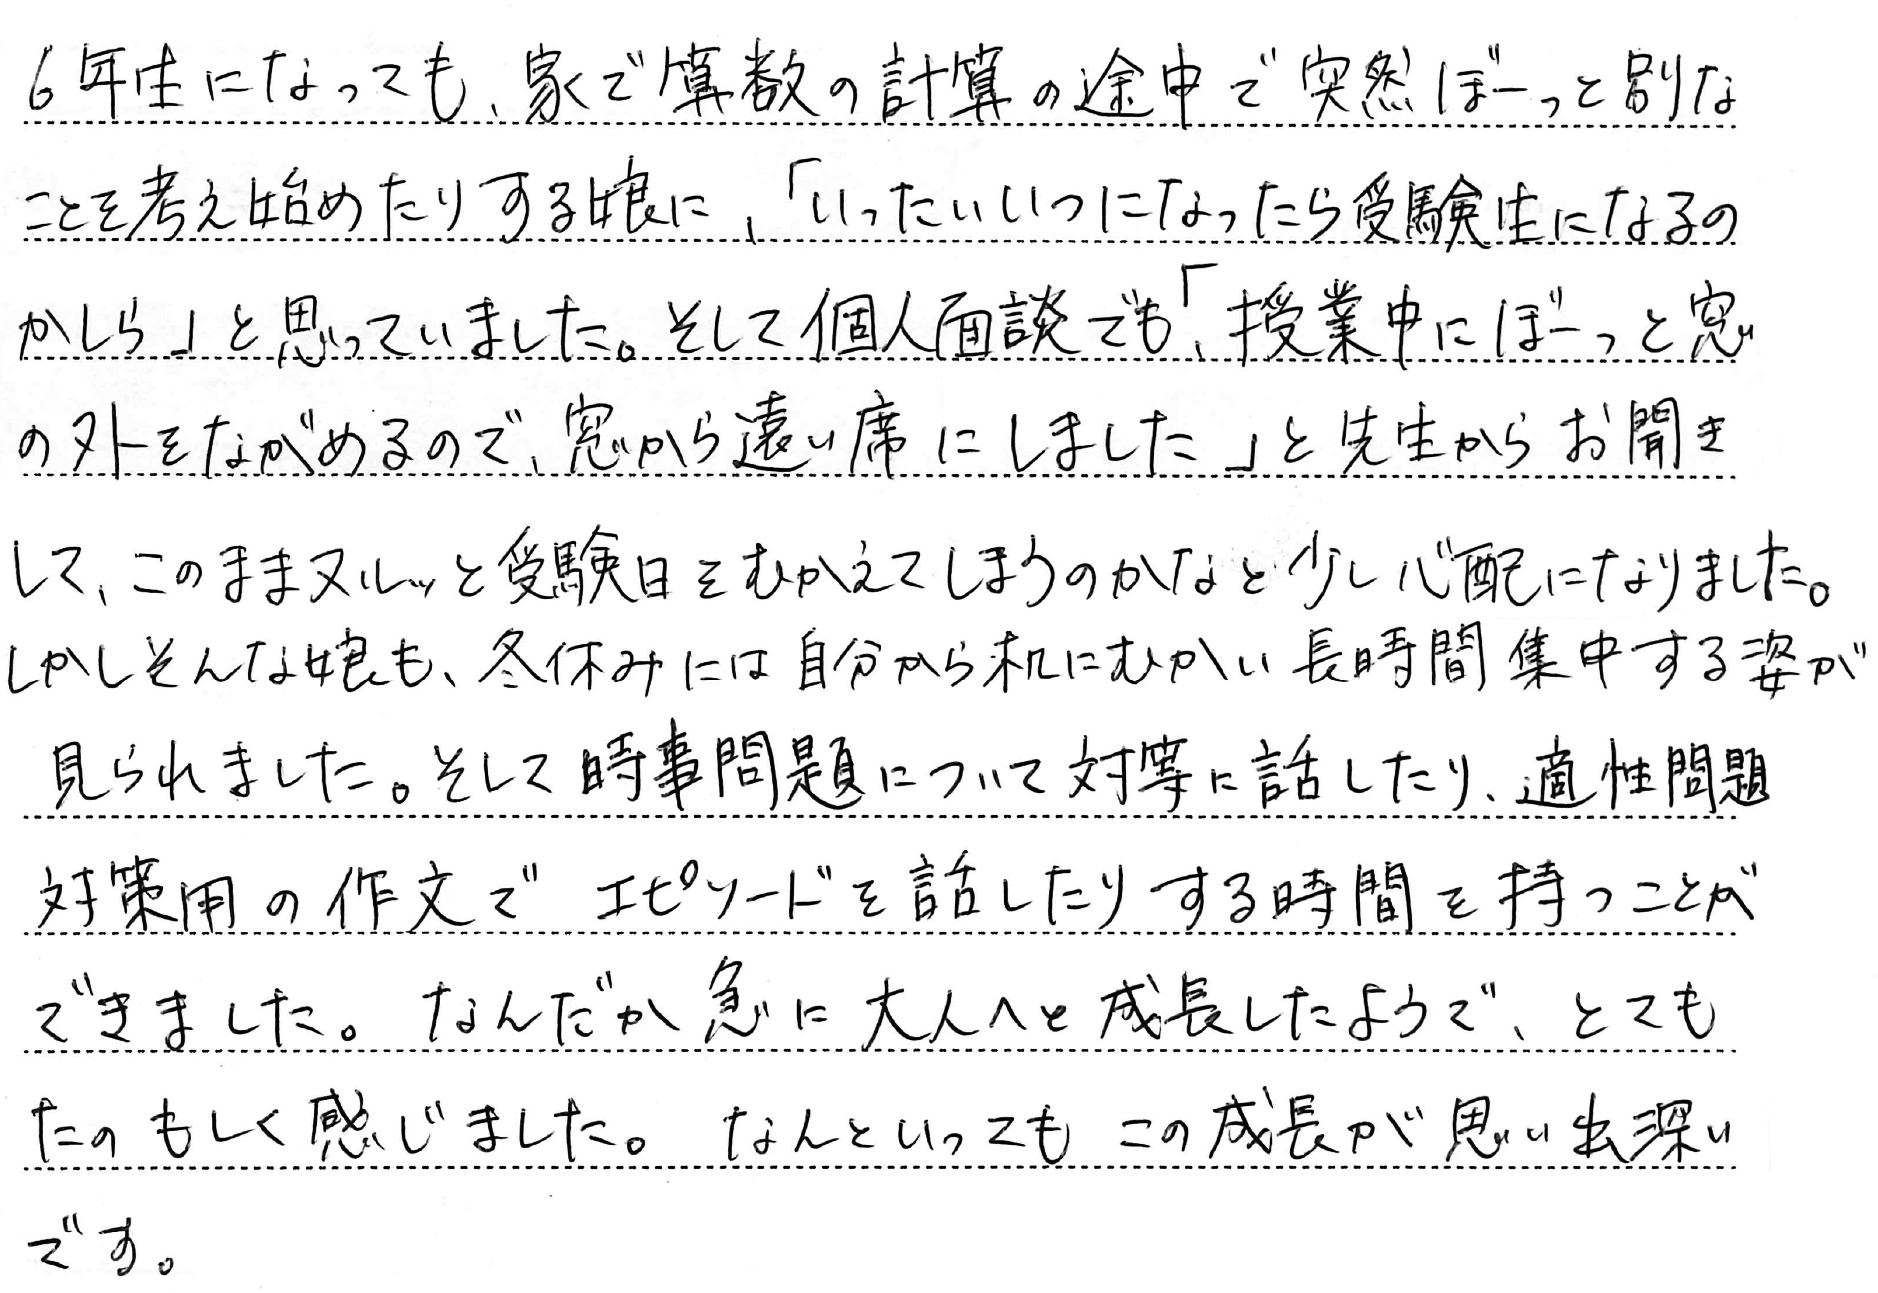 6年生になっても、家で算数の計算の途中で突然ぼーっと別な
ことを考え始めたりする娘に、「いったいいつになったら受験生になるの
かしら」と思っていました。そして個人面談でも、「授業中にぼーっと窓
の外をながめるので、窓から遠い席にしました」と先生からお聞き
して、このままヌルッと受験日をむかえてしまうのかなと少し心配になりました。
しかしそんな娘も、冬休みには自分から机にむかい長時間集中する姿が
見られました。そして時事問題について対等に話したり、適性問題
対策用の作文でエピソードを話したりする時間を持つことが
できました。なんだか急に大人へと成長したようで、とても
たのもしく感じました。なんといってもこの成長が思い出深い
です。